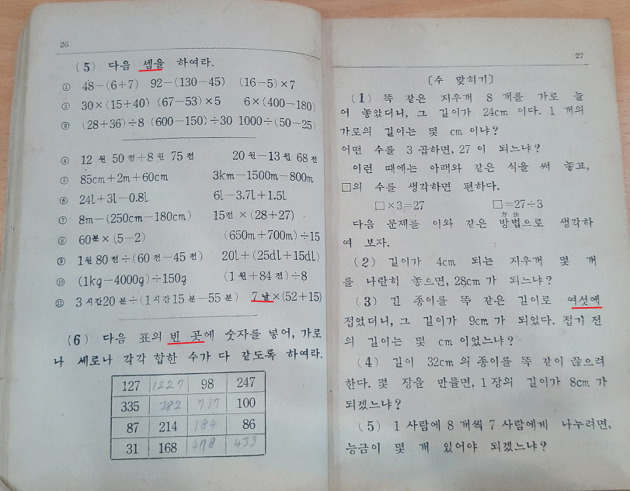 26
(5) 다음 셈을 하여라.
① 48−(6+7) 92−(130−45) (16−5)×7
② 30×(15+40) (67−53)×5 6×(400−180)
③ (28+36)÷8 (600−150)÷30 1000÷(50−25)
④ 12 원 50 전+8 원 75 전 20 원−13 원 68 전
⑤ 85cm+2m+60cm 3km−1500m−800m
⑥ 24l+3l−0.8l 6l−3.7l+1.5l
⑦ 8m−(250cm−180cm) 15전×(28+27)
⑧ 60분×(5−2) (650m+700m)÷15
⑨ 1원80전÷(60전−45전) 20l+(25dl+15dl)
⑩ (1kg−4000g)÷150g (1원+84전)÷8
⑪ 3시간20분÷(1시간15분−55분) 7날×(52+15)
(6) 다음 표의 빈 곳에 숫자를 넣어, 가로
나 세로나 각각 합한 수가 다 같도록 하여라.
127 1227 98 247
335 382 717 100
87 214 184 86
31 168 478 433
27
〔수 맞히기〕
(1) 똑 같은 지우개 8 개를 가로 늘
어 놓았더니, 그 길이가 24cm 이다. 1 개의
가로의 길이는 몇 cm 이냐?
어떤 수를 3 곱하면, 27 이 되느냐?
이런 때에는 아래와 같은 식을 써 놓고,
□의 수를 생각하면 편하다.
□×3=27 □=27÷3
다음 문제를 이와 같은 방법으로 생각하
여 보자.
(2) 길이가 4cm 되는 지우개 몇 개
를 나란히 놓으면, 28cm 가 되느냐?
(3) 긴 종이를 똑 같은 길이로 여섯에
접었더니, 그 길이가 9cm 가 되었다. 접기 전
의 길이는 몇 cm 이었느냐?
(4) 길이 32cm 의 종이를 똑 같이 끊으려
한다. 몇 장을 만들면, 1 장의 길이가 8cm 가
되겠느냐?
(5) 1 사람에 8 개씩 7 사람에게 나누려면,
능금이 몇 개 있어야 되겠느냐?